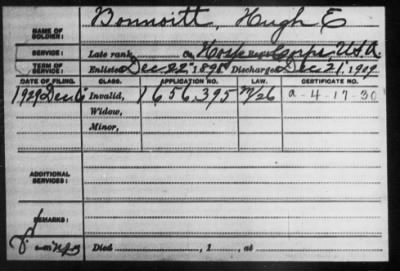 Bonnoitt, Hugh E
NAME OF SOLDIER:
SERVICE: Late rank, Co. Hosp. Corps, U.S.A.
TERM OF SERVICE: Enlisted Dec 22, 1898 Discharged Dec 21, 1907
DATE OF FILING. CLASS. APPLICATION NO. LAW. CERTIFICATE NO.
1929 Dec 6 Invalid, 1656,395 a-4-17-30
Widow,
Minor,
ADDITIONAL SERVICES:
REMARKS:
Died , 1 , at